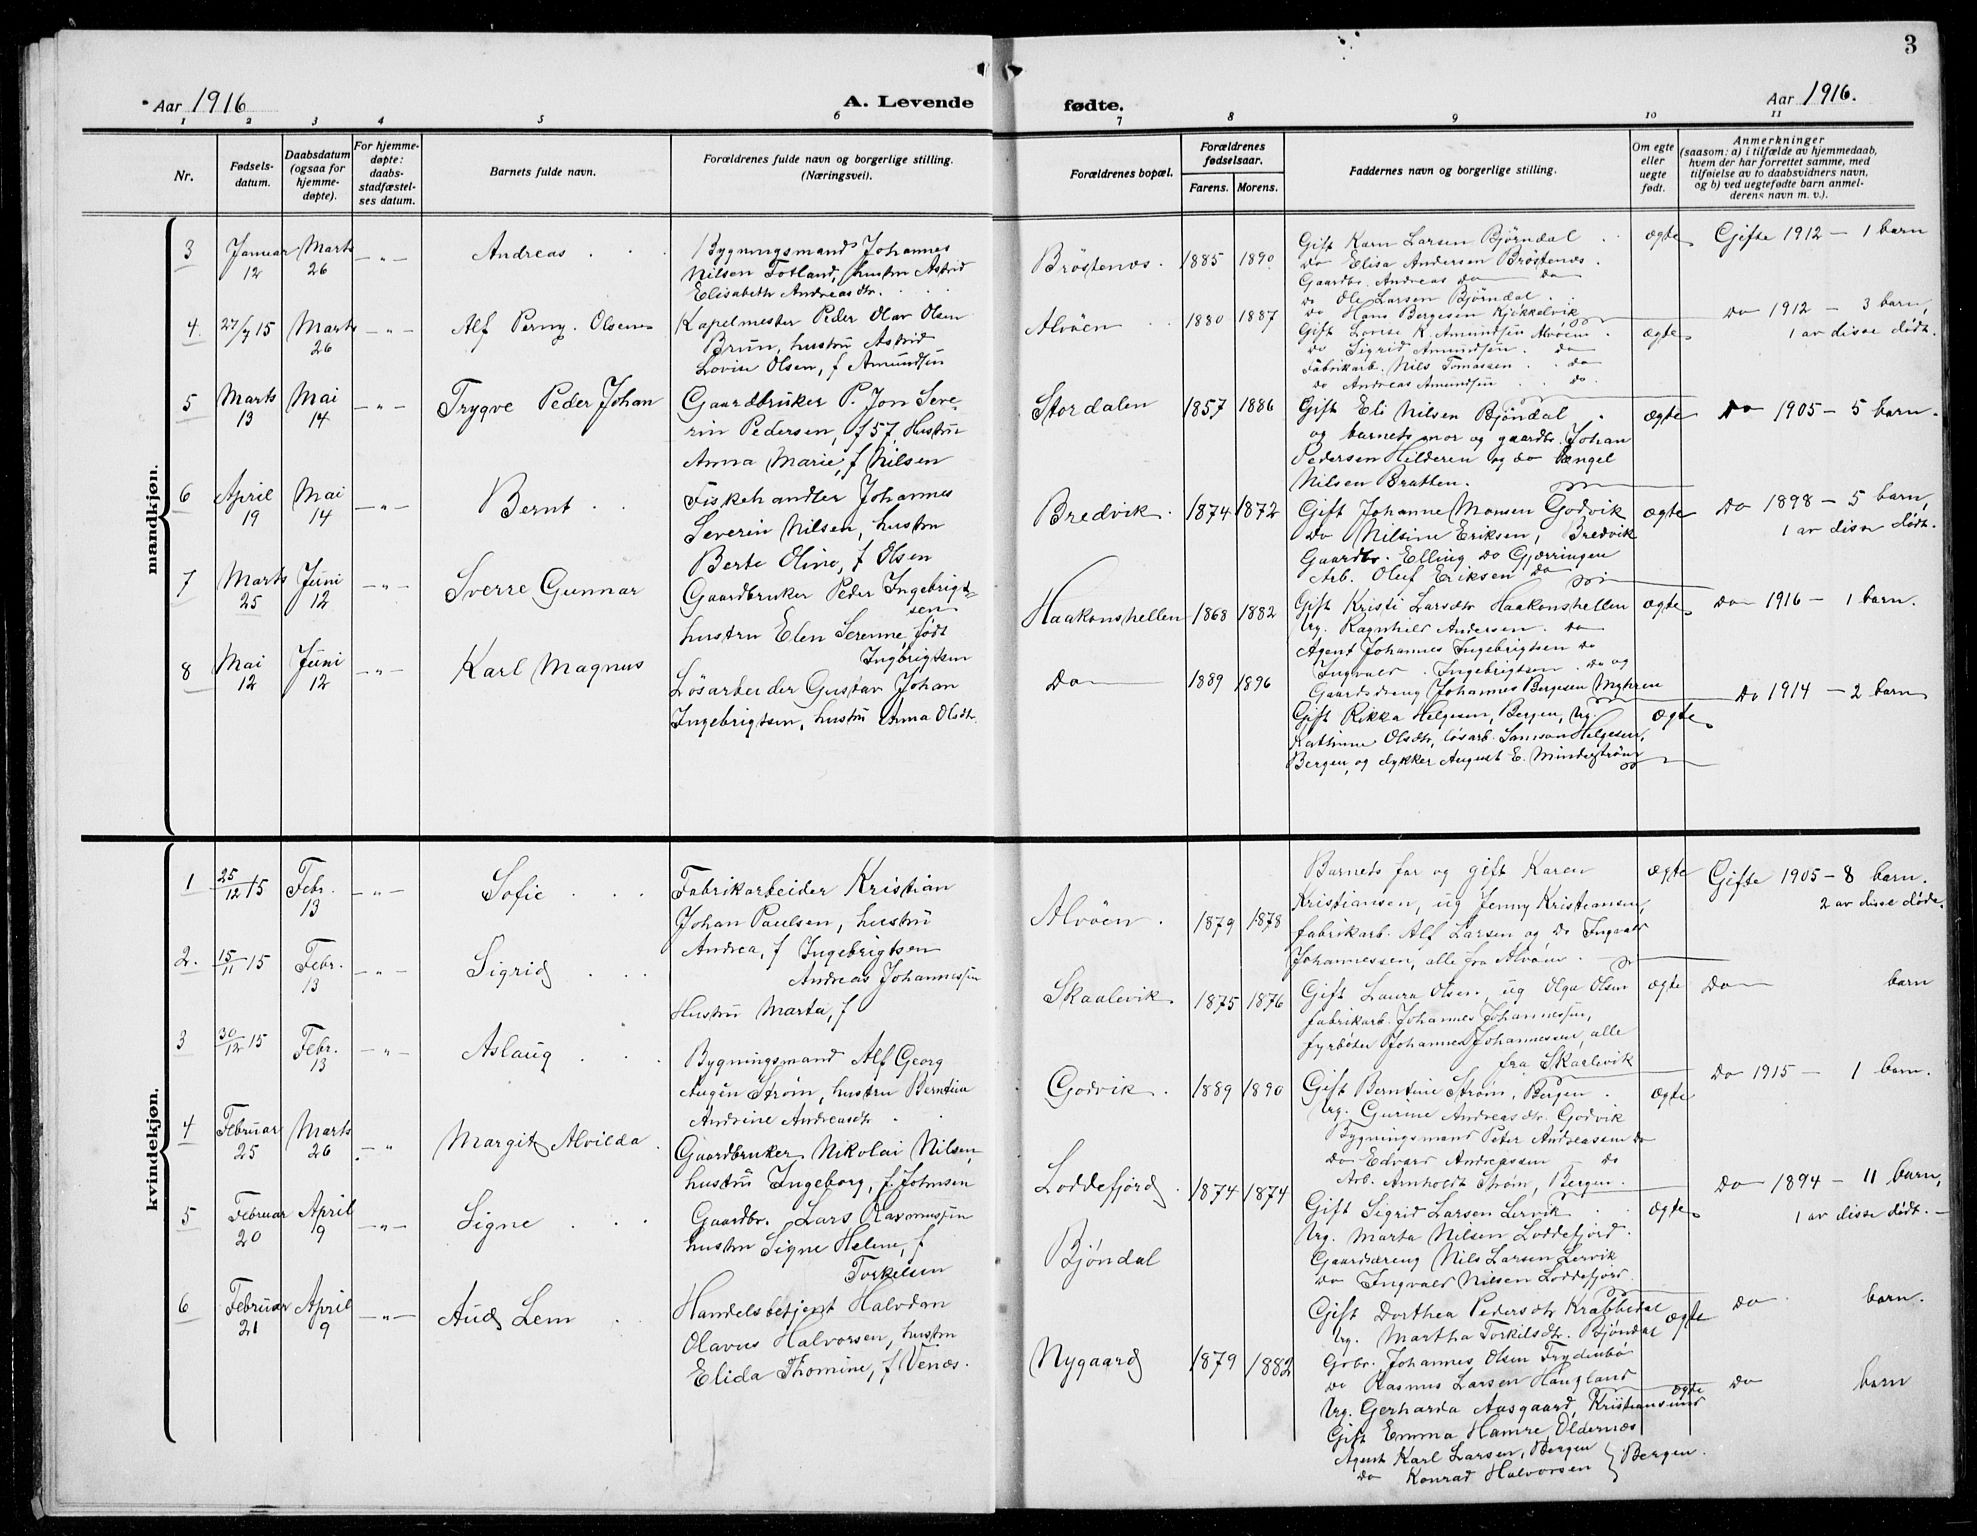 3
Aar 1916
A. Levende fødte.
Aar 1916.
1 2 3 4 5 6 7 8 9 10 11
Nr.
Fødsels-
datum.
Daabsdatum
(ogsaa for
hjemme-
døpte).
For hjemme-
døpte:
daabs-
stadfæstel-
ses datum.
Barnets fulde navn.
Forældrenes fulde navn og borgerlige stilling.
(Næringsvei).
Forældrenes bopæl.
Forældrenes
fødselsaar.
Farens. Morens.
Faddernes navn og borgerlige stilling.
Om egte
eller
uegte
født.
Anmerkninger
(saasom: a) i tilfælde av hjemmedaab,
hvem der har forrettet samme, med
tilføielse av to daabsvidners navn,
og b) ved uegtefødte barn anmel-
derens navn m. v.).
mandkjøn.
3 Januar 12 Marts 26 -"- Andreas
Bygningsmand Johannes
Nilsen Totland, hustru Astrid
Elisabeth Andreasdtr.
Brøstenæs. 1885 1890
Gift Karn Larsen Bjørndal
Do Elisa Andersen Brøstenæs.
Gaardbr. Andreas do do
Do Ole Larsen Bjørndal
Do Hans Bergesen Kjøkkelvik
ægte Gifte 1912 - 1 barn
4. 27/7 15 Marts 26 -"- Alf Perny. Olsen
Kapelmester Peder Olav Olsen
Brun, hustru Astrid
Lovise Olsen, f Amundsen
Alvøen 1880 1887
Gift Lovise K. Amundsen Alvøen
do Sigrid Amundsen. do
Fabrikarb. Nils Tomassen. do
do Andreas Amundsen do.
ægte Do 1912 - 3 barn,
1 av disse dødt.
5 Marts 13 Mai 14 -"- Trygve Peder Johan
Gaardbruker P. Jon Seve-
rin Pedersen, f 57, Hustru
Anna Marie, f Nilsen
Stordalen 1857 1886
Gift Eli Nilsen Bjøndal
og barnets mor og gaardbr. Johan
Pedersen Hilderen og do Engel
Nilsen Bratten.
ægte Do 1905 - 5 barn.
6 April 19 Mai 14 -"- Bernt
Fiskehandler Johannes
Severin Nilsen, hustru
Berte Oline, f Olsen
Bredvik. 1874 1872
Gift Johanne Monsen Godvik
Do Nilsine Eriksen, Bredvik
Gaardbr. Elling do Gjærringen
Arb. Oluf Eriksen do
ægte Do 1898 - 5 barn,
1 av disse dødt.
7 Marts 25 Juni 12 -"- Sverre Gunnar
Gaardbruker Peder Ingebrigt-
sen
hustru Elen Serenne, født
Ingbrigtsen
Haakonshellen 1868 1882
Gift Kristi Larsdtr Haakonshellen
Ug. Ragnhild Andersen. do
Agent Johannes Ingebrigtsen do
Ingvald Ingebrigtsen. do og
Gaardsdreng Johannes Bergesen Myhren
ægte Do 1916 - 1 barn.
8 Mai 12 Juni 12 -"- Karl Magnus
Løsarbeider Gustav Johan
Ingebrigtsen, hustru Anna Olsdtr.
Do 1889 1896
Gift Rikka Helgesen, Bergen, ug.
Kathrine Olsdtr, løsarb. Samson Helgesen,
Bergen, og dykker August E. Minderstrøm
do
ægte Do 1914 - 2 barn
kvindekjøn.
1 25/12 15 Febr. 13 -"- Sofie
Fabrikarbeider Kristian
Johan Paulsen, hustru
Andrea, f Ingebrigtsen
Alvøen. 1879 1878
Barnets far og gift Karen
Kristiansen, ug Jenny Kristiansen,
fabrikarb. Alf Larsen og do Ingvald
Johannessen, alle fra Alvøen.
ægte Gifte 1905 - 8 barn.
2 av disse døde.
2. 15/11 15 Febr. 13 -"- Sigrid
Andreas Johannessen
Hustru Marta, f
Skaalevik 1875 1876
Gift Laura Olsen, ug Olga Olsen
fabrikarb. Johannes Johannessen,
fyrbøter Johannes Johannessen, alle
fra Skaalevik
ægte Do barn
3 30/12 15 Febr. 13 -"- Aslaug
Bygningsmand Alf Georg
Eugén Strøm, hustru Berntine
Andrine Andreasdtr
Godvik 1889 1890
Gift Berntine Strøm, Bergen
Ug. Gurine Andreasdtr. Godvik
Bygningsmand Peter Andreassen do
Do Edvard Andreassen do
Arb. Arnholdt Strøm, Bergen.
ægte Do 1915 - 1 barn.
4 Februar 25 Marts 26 -"- Margit Alvilda
Gaardbruker Nikolai Nilsen,
hustru Ingeborg, f. Johnsen
Loddefjord 1874 1874
Gift Sigrid Larsen Lervik
Ug. Marta Nilsen Loddefjord.
Gaardsdreng Nils Larsen Lervik
Do Ingvald Nilsen Loddefjord.
ægte Do 1894 - 11 barn,
1 av disse dødt.
5 Februar 20 April 9 -"- Signe
Gaardbr. Lars Rasmussen
hustru Signe Helene, f
Torkelsen
Bjøndal
Gift Dorthea Pedersdtr Krabbedal
Ug. Martha Torkilsdtr. Bjøndal
Grbr. Johannes Olsen Frydenbø
Do Rasmus Larsen Haugland
ægte Do barn.
6 Februar 21 April 9 -"- Aud Lem
Handelsbetjent Halvdan
Olavus Halvorsen, hustru
Elida Thomine, f Venæs.
Nygaard 1879 1882
Ug. Gerharda Aasgaard, Kristiansund
Gift Emma Hamre, Oldernæs
Agent Karl Larsen, Bergen
Do Konrad Halvorsen } Bergen.
ægte Do barn